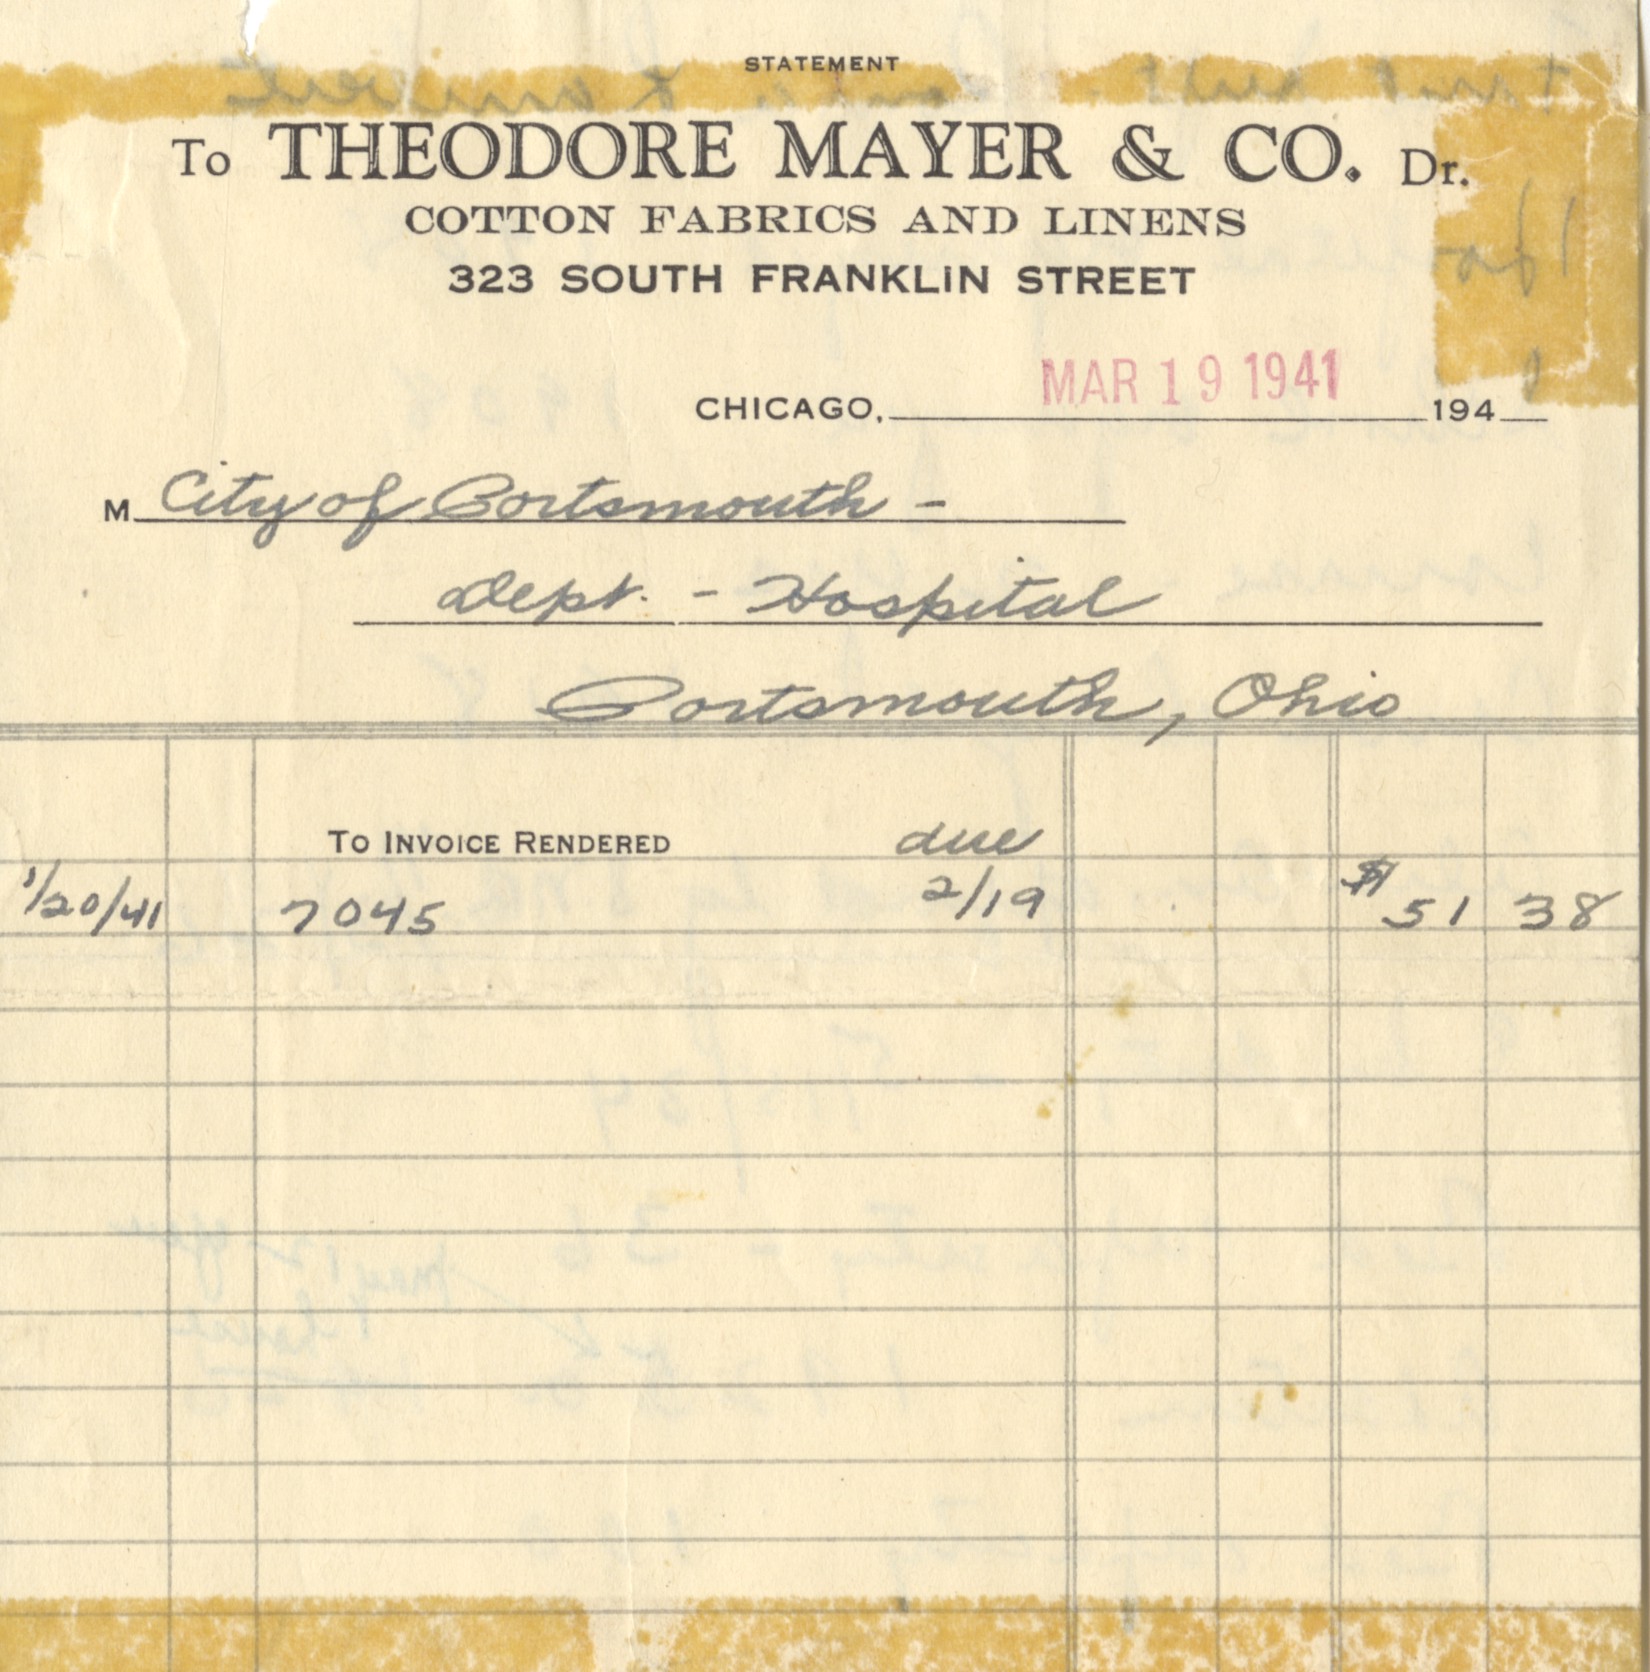 STATEMENT
To THEODORE MAYER & CO. Dr.
COTTON FABRICS AND LINENS
323 SOUTH FRANKLIN STREET
CHICAGO, MAR 19 1941 194
M City of Portsmouth -
Dept. - Hospital
Portsmouth, Ohio
TO INVOICE RENDERED due
1/20/41 7045 2/19 $51 38